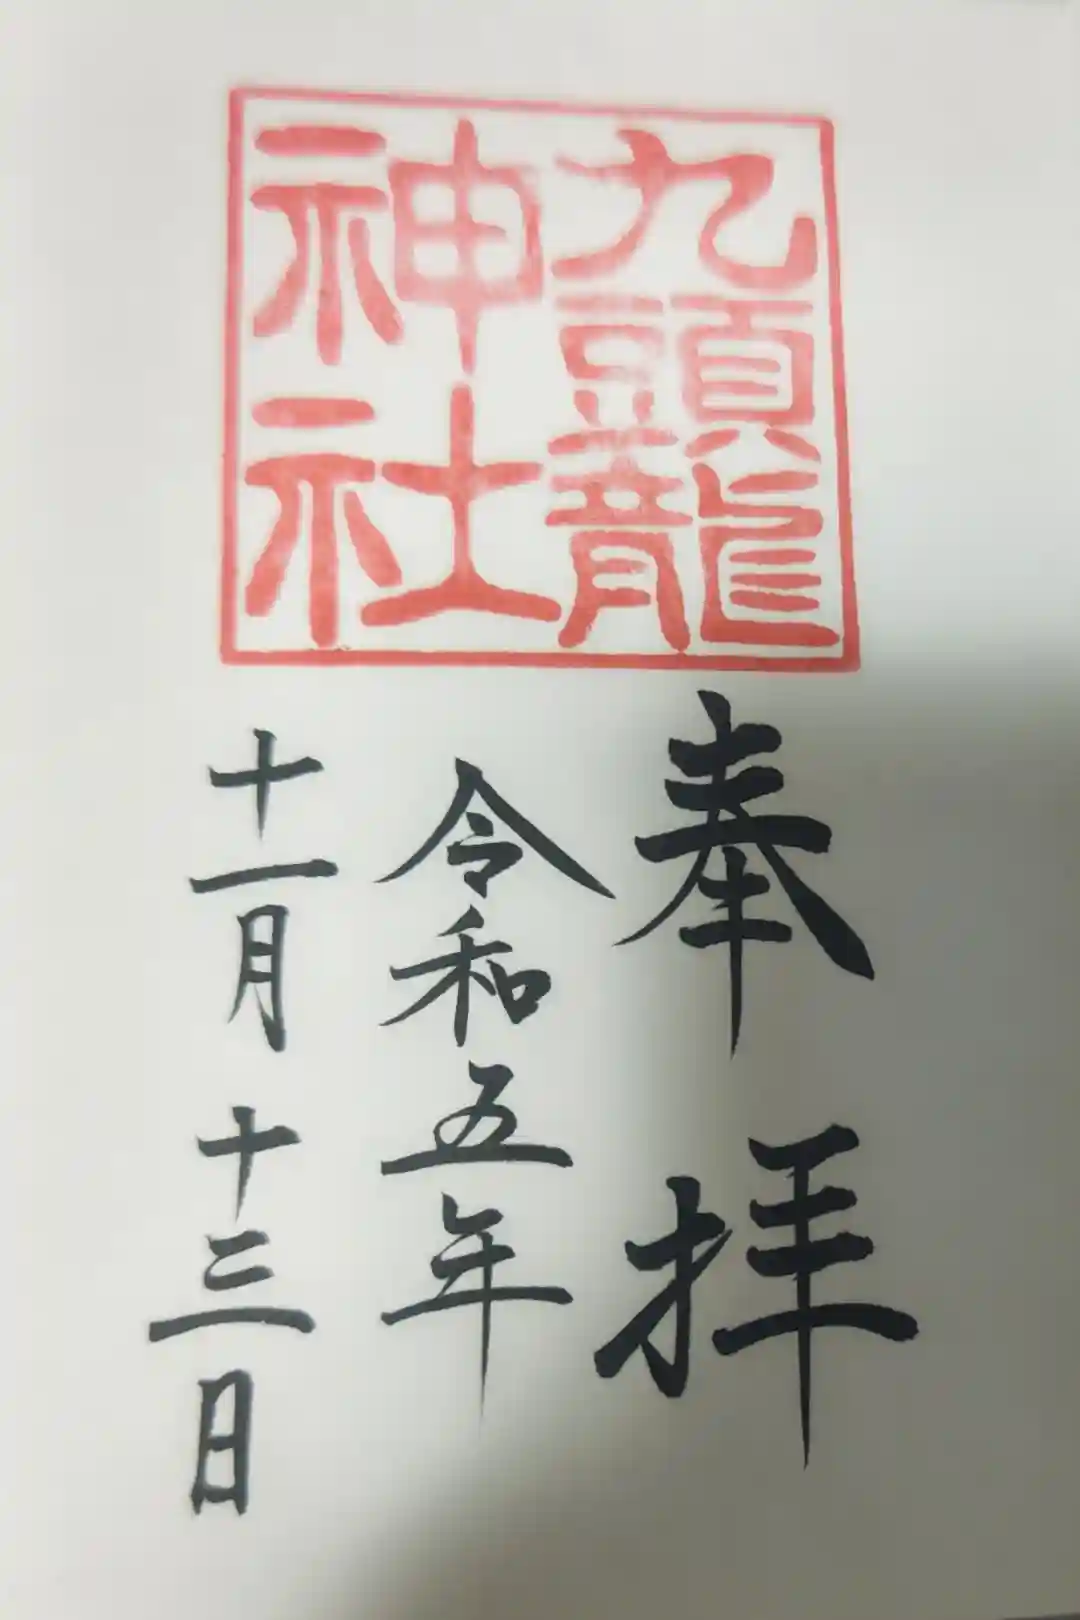 九頭龍
神社
奉拝
令和五年
十一月十三日